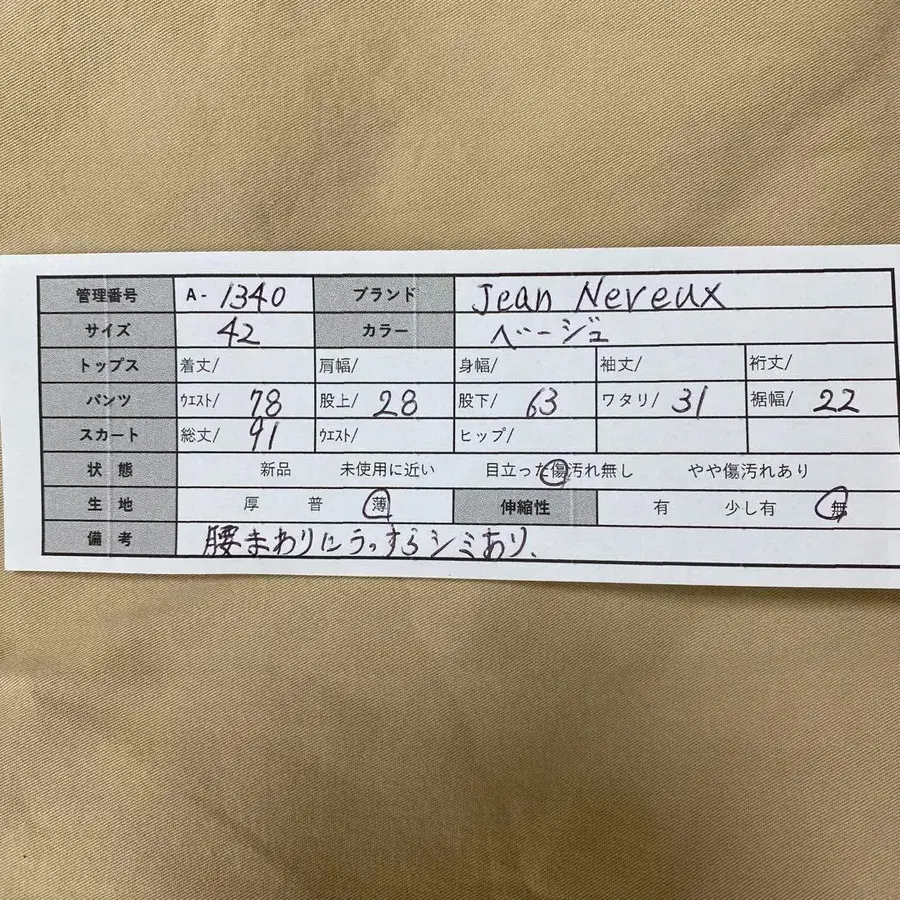 管理番号 A- 1340 ブランド Jean Nereux
サイズ 42 カラー ベージュ
トップス 着丈/ 肩幅/ 身幅/ 袖丈/ 裄丈/
パンツ ｳｴｽﾄ/ 78 股上/ 28 股下/ 63 ワタリ/ 31 裾幅/ 22
スカート 総丈/ 91 ｳｴｽﾄ/ ヒップ/
状態 新品 未使用に近い 目立った傷汚れ無し やや傷汚れあり
生地 厚 普 薄 伸縮性 有 少し有 無
備考 腰まわりにうっすらシミあり、